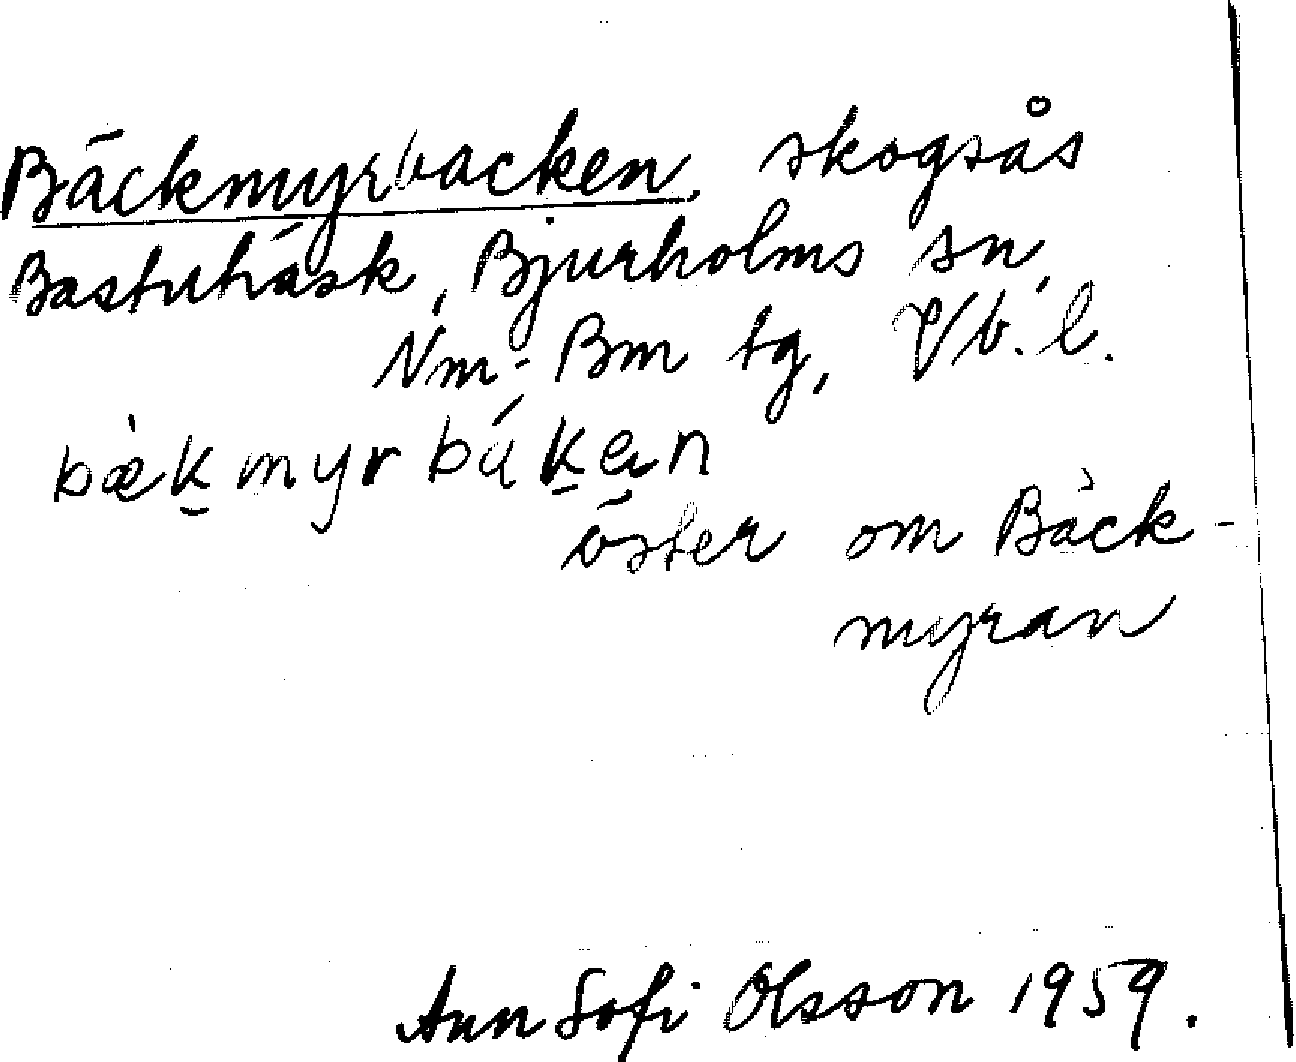 Bäckmyrbacken, skogsås
Bastuträsk, Bjurholms sn,
Nm-Bm tg, Vb. l.
bæ̀k̠myrbák̠en
öster om Bäck-
myran
Ann Sofi Olsson 1959.